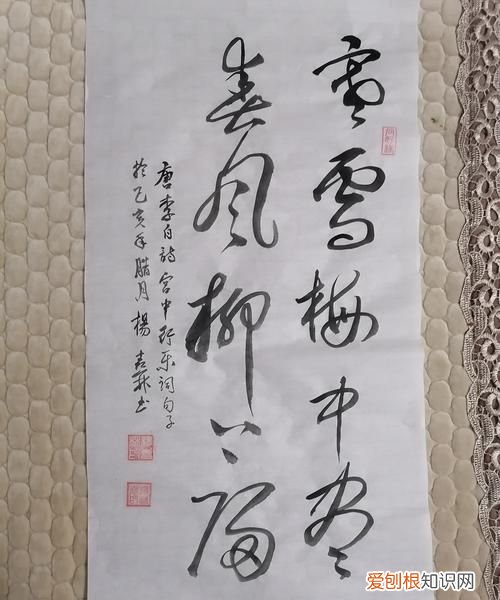 寒雪梅中尽
春风柳上归
唐李白詩宫中行乐词句子
於乙亥年腊月楊
书
爱刨根知识网